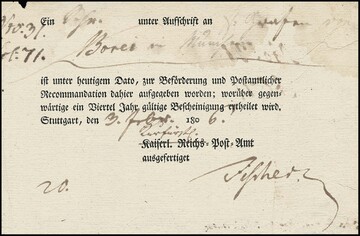 Ein Schr. unter Aufschrift an Grafen von
No. 31.
fol. 71. Borei in München
ist unter heutigem Dato, zur Beförderung und Postamtlicher
Recommandation dahier aufgegeben worden; worüber gegen-
wärtige ein Viertel Jahr gültige Bescheinigung ertheilt wird,
Stuttgart, den 3. Febr. 1806.
Kurfürstl.
Kaiserl. Reichs-Post-Amt
ausgefertiget
20. Fischer